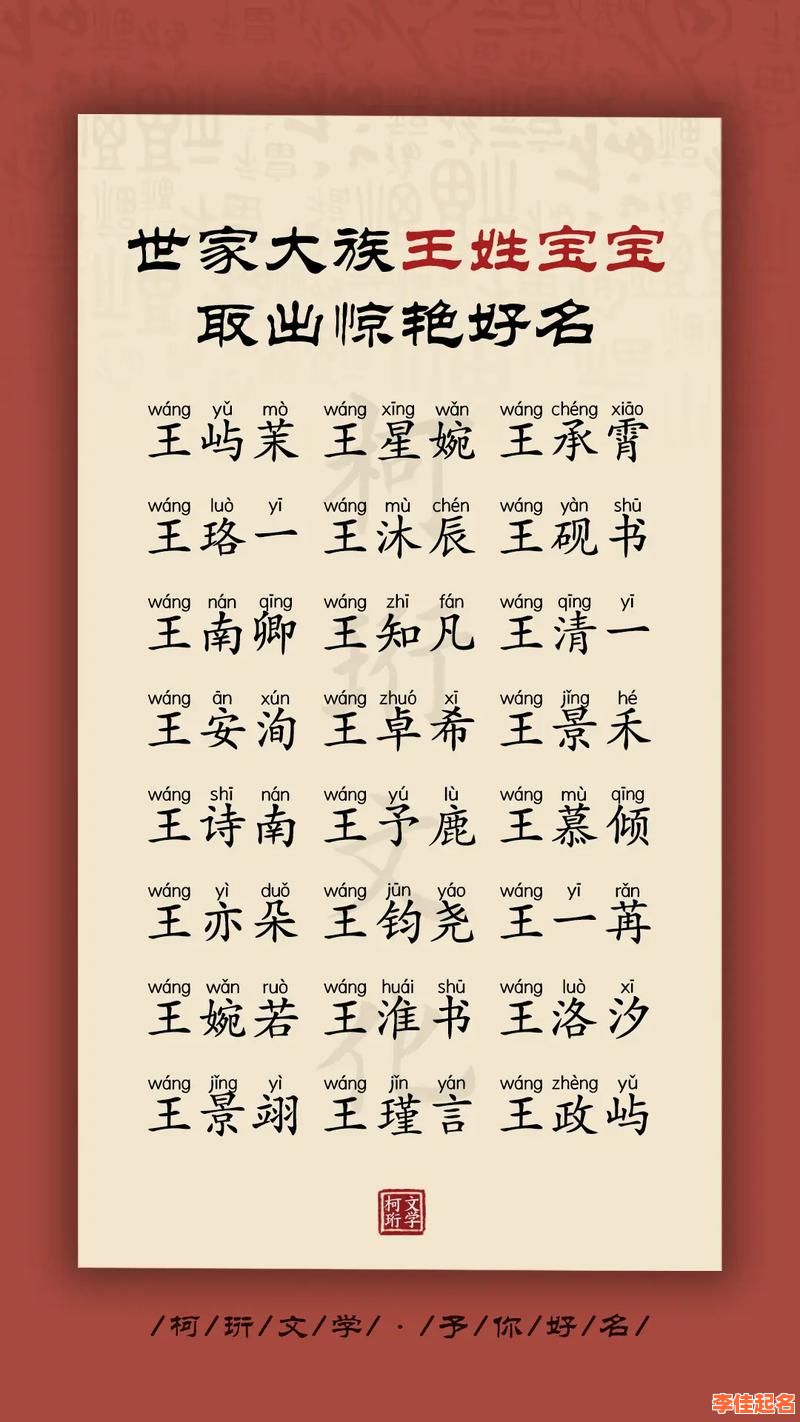 世家大族王姓宝宝
取出惊艳好名
wáng yǔ mò wáng xīng wǎn wáng chéng xiāo
王屿茉 王星婉 王承霄
wáng luò yī wáng mù chén wáng yàn shū
王珞一 王沐辰 王砚书
wáng nán qīng wáng zhī fán wáng qīng yī
王南卿 王知凡 王清一
wáng ān xún wáng zhuó xī wáng jǐng hé
王安洵 王卓希 王景禾
wáng shī nán wáng yú lù wáng mù qīng
王诗南 王予鹿 王慕倾
wáng yì duǒ wáng jūn yáo wáng yī rǎn
王亦朵 王钧尧 王一苒
wáng wǎn ruò wáng huái shū wáng luò xī
王婉若 王淮书 王洛汐
wáng jǐng yì wáng jǐn yán wáng zhèng yǔ
王景翊 王瑾言 王政屿
柯珩文化
柯珩文学
/柯/珩/文/学/·/予/你/好/名/
李佳起名